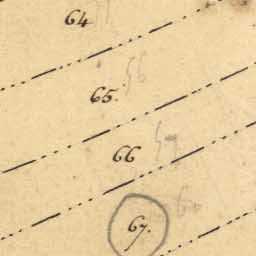 64
65.
56
66
59
60
67.